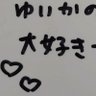 ゆいかの
大好き